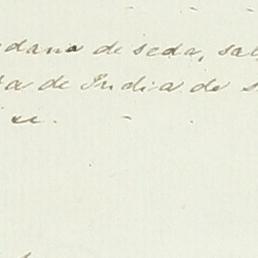 dana de seda, sal
a de India de s